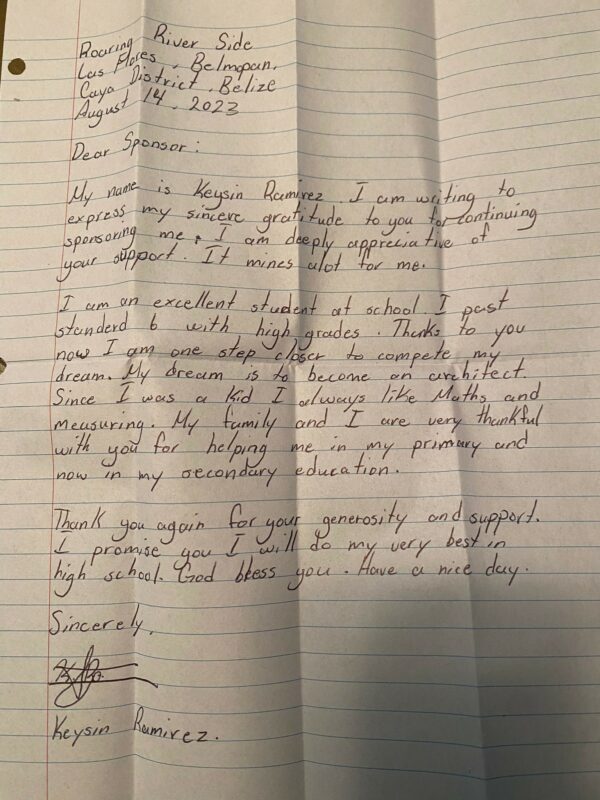 Roaring River Side
Las Flores, Belmopan.
Cayo District, Belize
August 14, 2023
Dear Sponsor:
My name is Keysin Ramirez. I am writing to
express my sincere gratitude to you for continuing
sponsoring me. I am deeply appreciative of
your support. It mines alot for me.
I am an excellent student at school I past
standerd 6 with high grades. Thanks to you
now I am one step closer to compete my
dream. My dream is to become an architect.
Since I was a kid I always like Maths and
measuring. My family and I are very thankful
with you for helping me in my primary and
now in my secondary education.
Thank you again for your generosity and support.
I promise you I will do my very best in
high school. God bless you. Have a nice day.
Sincerely,
Keysin Ramirez.